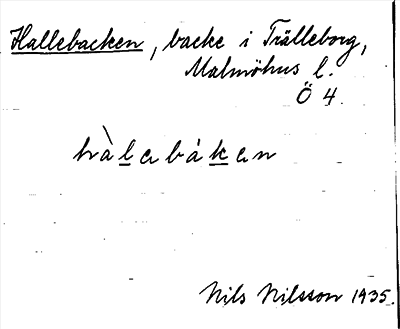 Hallebacken, backe i Trälleborg,
Malmöhus l.
Ö 4.
hàlabákan
Nils Nilsson 1935.